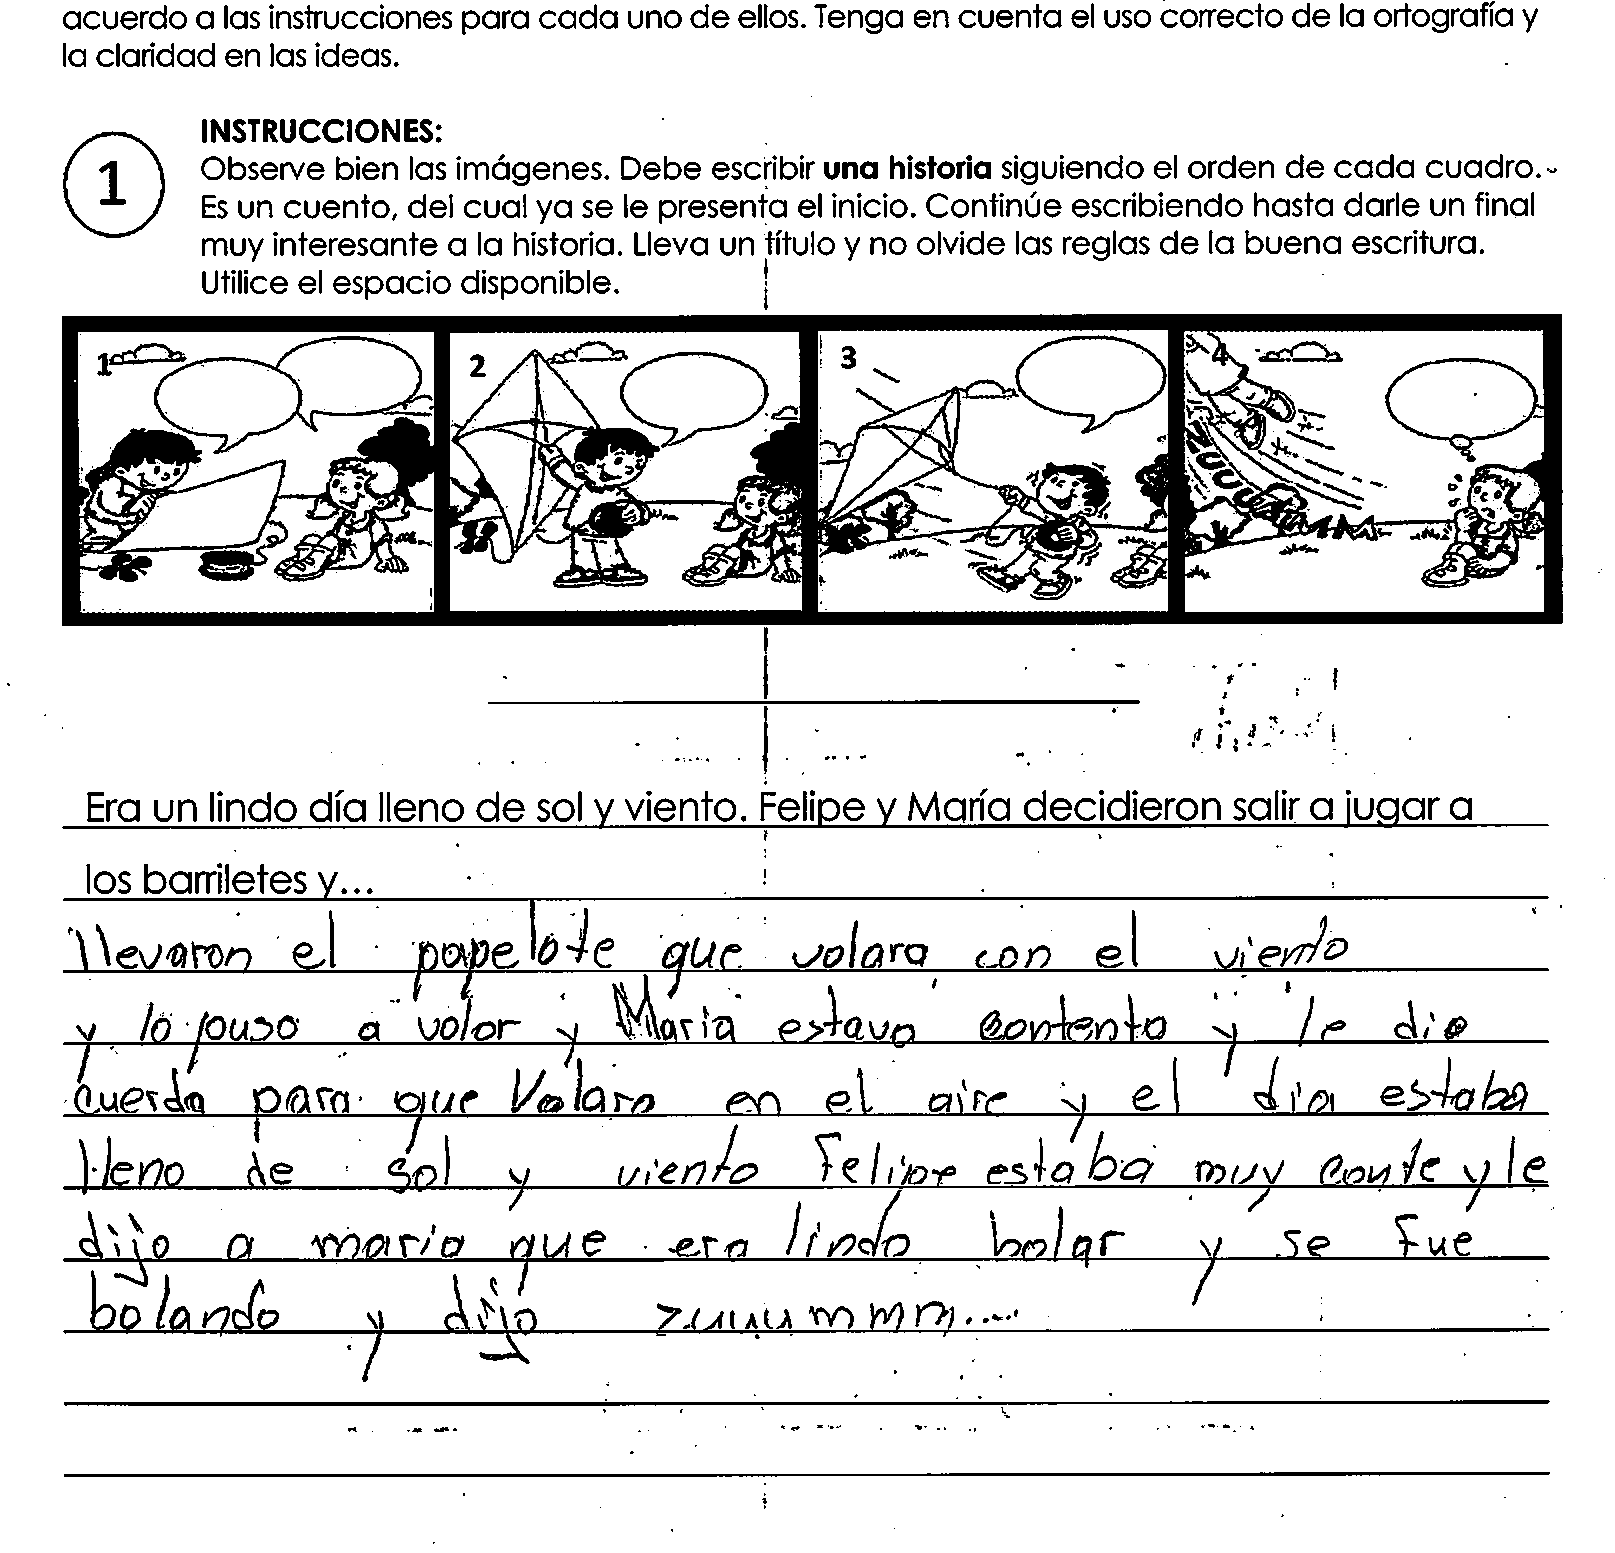 acuerdo a las instrucciones para cada uno de ellos. Tenga en cuenta el uso correcto de la ortografía y
la claridad en las ideas.
1
INSTRUCCIONES:
Observe bien las imágenes. Debe escribir una historia siguiendo el orden de cada cuadro.
Es un cuento, del cual ya se le presenta el inicio. Continúe escribiendo hasta darle un final
muy interesante a la historia. Lleva un título y no olvide las reglas de la buena escritura.
Utilice el espacio disponible.
1 2 3 4
ZUUUUMMM
Era un lindo día lleno de sol y viento. Felipe y María decidieron salir a jugar a
los barriletes y...
llevaron el papelote que volara con el viento
y lo puso a volar y Maria estava contenta y le dio
cuerda para que Volara en el aire y el dia estaba
lleno de sol y viento Felipe estaba muy conte y le
dijo a maria que era lindo bolar y se fue
bolando y dijo zuuummm....